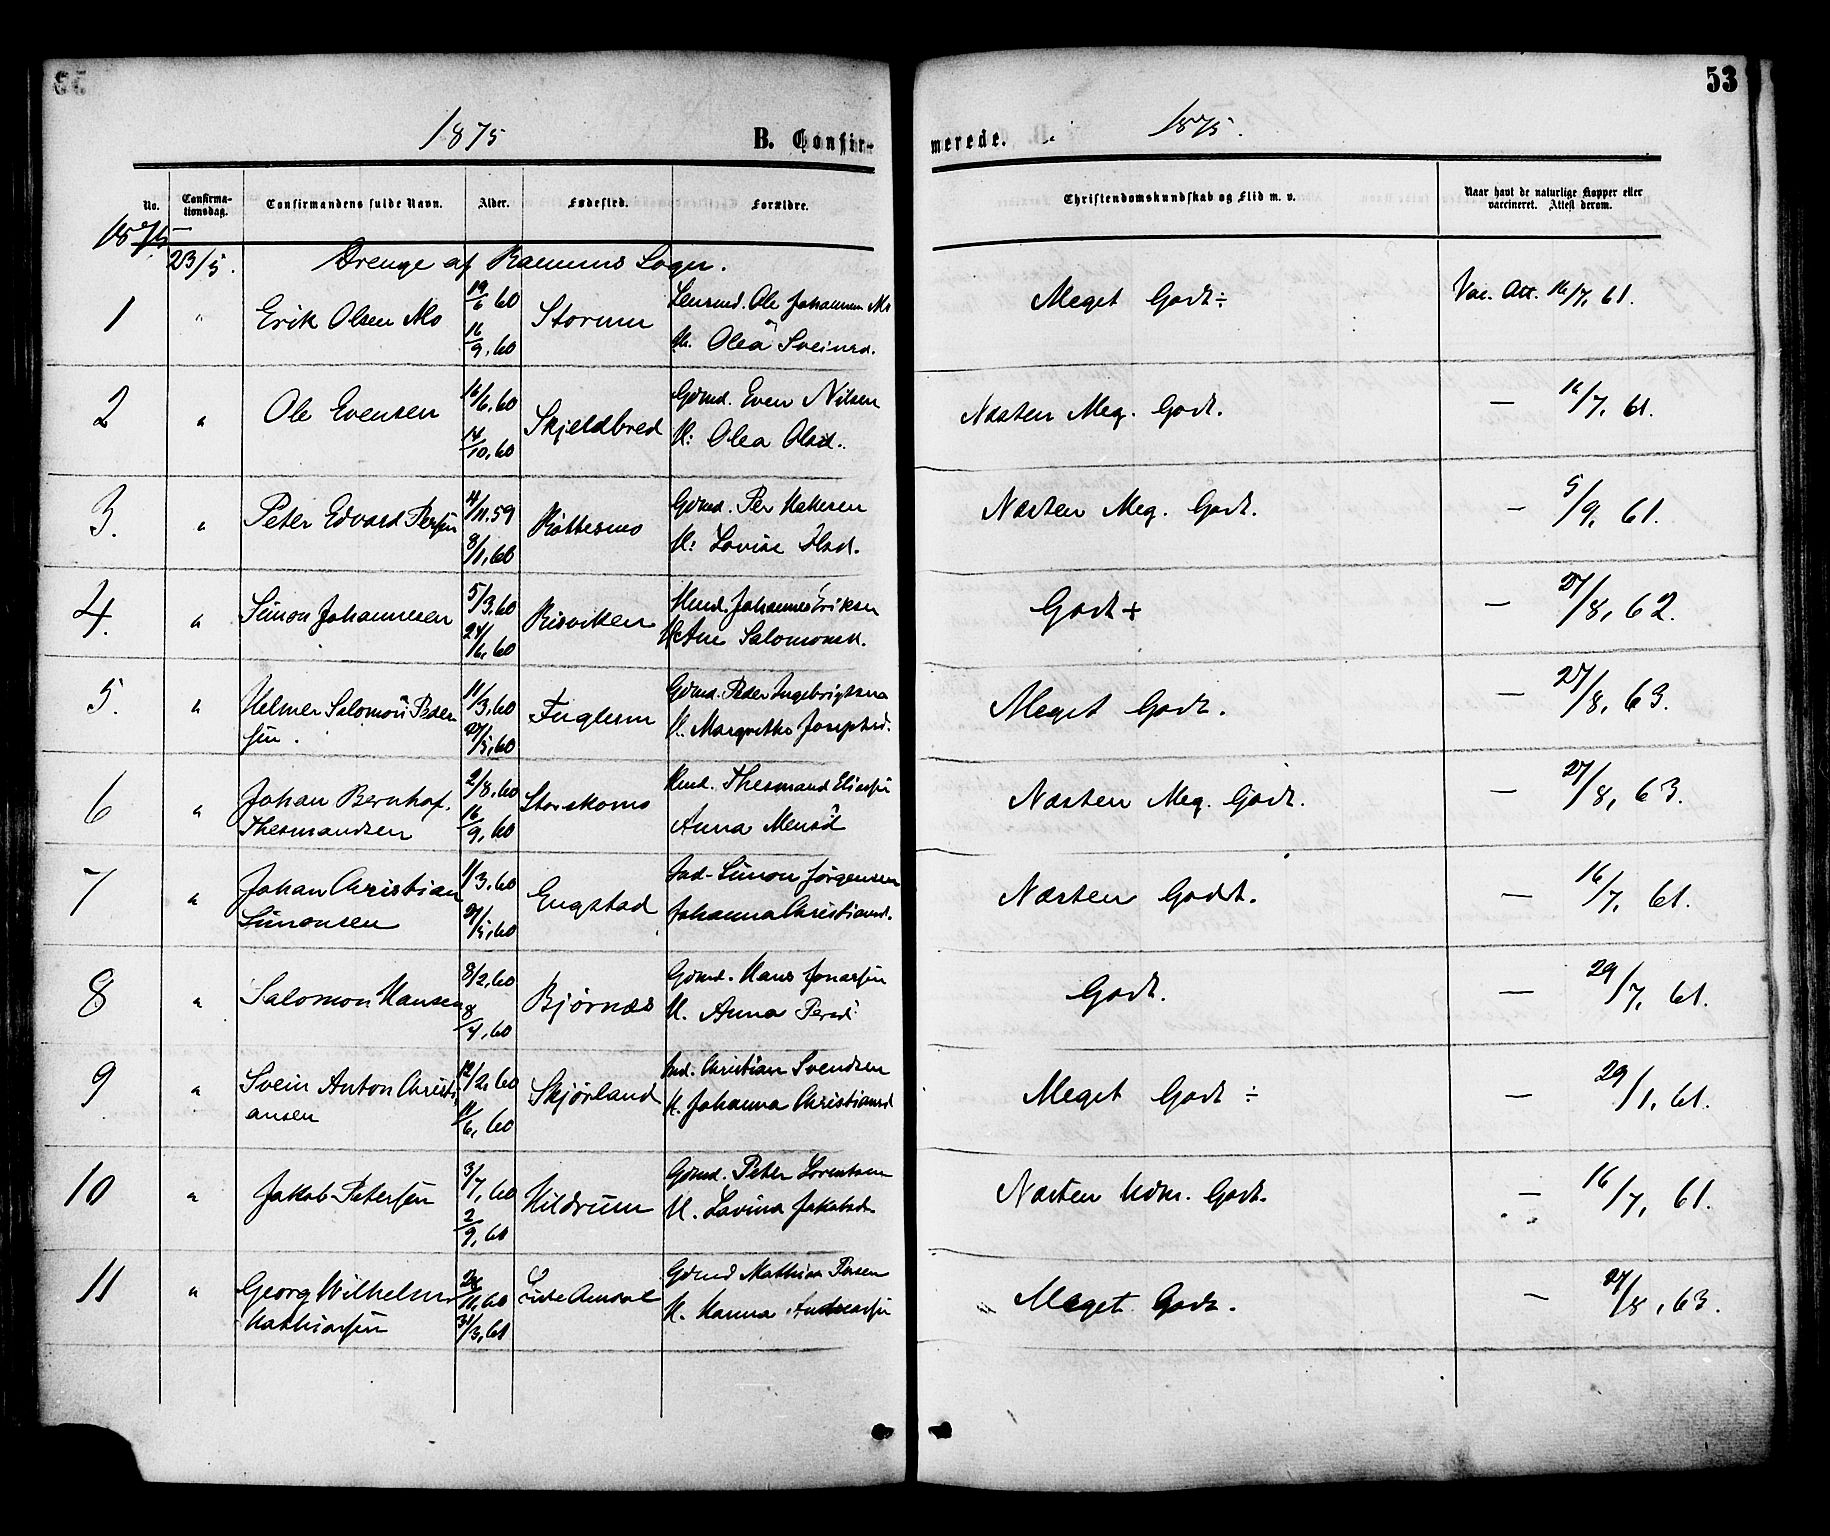 53
1875
B. Confir-
merede.
1875.
No.
Confirma-
tionsdag.
Confirmandens fulde Navn.
Alder.
Fødested.
Forældre.
Christendomskundskab og Flid m. v.
Naar havt de naturlige Kopper eller
vaccineret. Attest derom.
1875
23/5. Drenge af Ranums Sogn.
1 " Erik Olsen Mo 19/6 60 Storum Lensmd. Ole Johannesen Mo Meget Godt ÷ Vac. Att. 16/7, 61.
16/9, 60 H. Olea Sveinsd.
2 " Ole Evensen 16/6, 60 Skjeldbred Gdmd. Even Nilsen Næsten Meg. Godt. — 16/7, 61.
14/10, 60 H: Olea Olsd.
3. " Peter Edvard Persen 4/11, 59 Gdmd. Per Næsten Meg. Godt. — 5/9, 61.
8/1, 60 H: Lovise Olsd.
4. " Simon Johannesen 5/3, 60 Risviken Hmd. Johannes Eriksen Godt + — 27/8, 62.
24/6, 60 H. Ane Salomonsd.
5. " Helmer Salomon Peder 11/3, 60 Fuglum Gdmd. Peder Ingebrigtsen Meget Godt. — 27/8, 63.
sen. 27/5, 60 H. Margrethe Josephsd.
6 " Johan Bernhof. 2/8, 60 Storskomo Hmd. Thesmand Eliassen Næsten Meg. Godt. — 27/8, 63.
Thesmandsen 16/9, 60 Anna Mensd
7 " Johan Christian 11/3, 60 Engstad Ind. Simon Jørgensen Næsten Godt. — 16/7, 61.
Simonsen 27/5, 60 Johanna Christiansd.
8 " Salomon Hansen 8/2, 60 Bjørnæs Gdmd. Hans Jonassen Godt. — 29/7, 61.
8/4, 60 H. Anna Persd.
9 " Svein Anton Christi 12/2, 60 Skjørland Ind. Christian Svendsen Meget Godt ÷ — 29/1, 61.
ansen 11/6, 60 H. Johanna Christiansd
10 " Jakob Petersen 3/7, 60 Hildrum Gdmd. Peter Lorentsen Næsten Udm. Godt. — 16/7, 61.
2/9, 60 H. Lavina Jakobsd.
11 " Georg Wilhelm 11, 60 Gdmd Mathias Persen Meget Godt. — 27/8, 63.
Mathiassen 31/3, 61 H. Hanna